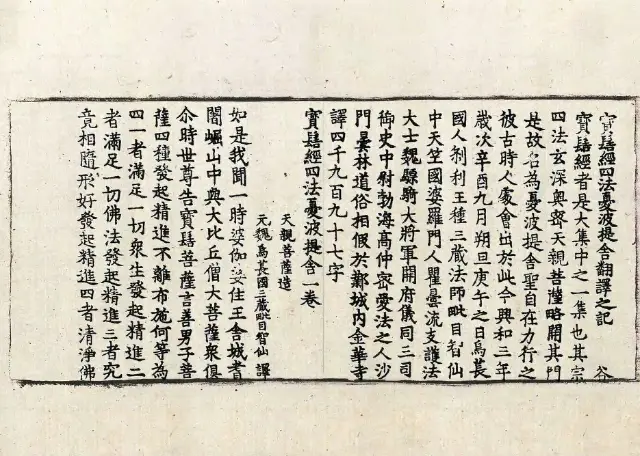 寶髻經四法憂波提舍翻譯之記 谷
寶髻經者是大集中之一集也其宗
四法玄深奧密天親菩薩略開其門
是故名為憂波提舍聖自在力行之
彼古時人處會出於此今興和三年
歲次辛酉九月朔旦庚午之日烏萇
國人剎利王種三藏法師毗目智仙
中天竺國婆羅門人瞿曇流支護法
大士魏驃騎大將軍開府儀同三司
御史中尉勃海高仲密愛法之人沙
門曇林道俗相假於鄴城內金華寺
譯四千九百九十七字
寶髻經四法憂波提舍一卷
天親菩薩造
元魏烏萇國三藏毗目智仙 譯
如是我聞一時婆伽婆住王舍城耆
闍崛山中與大比丘僧大菩薩衆俱
尒時世尊告寶髻菩薩言善男子菩
薩四種發起精進不離布施何等為
四一者滿足一切衆生發起精進二
者滿足一切佛法發起精進三者究
竟相隨形好發起精進四者清淨佛